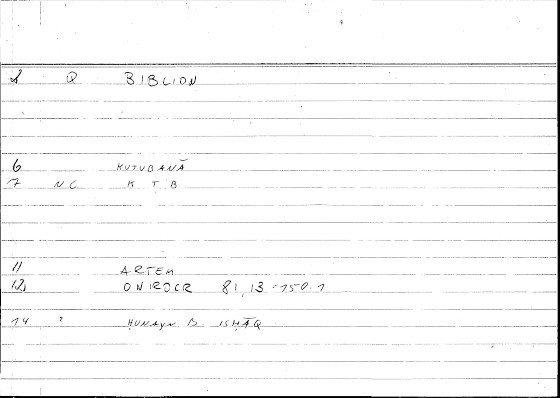 1 Q BIBLION
6 KUTUBANĀ
7 N.C K T B
11 ARTEM
12 ONIROCR 81,13.-150.1
14 ? ḤUNAYN B. ISḤĀQ